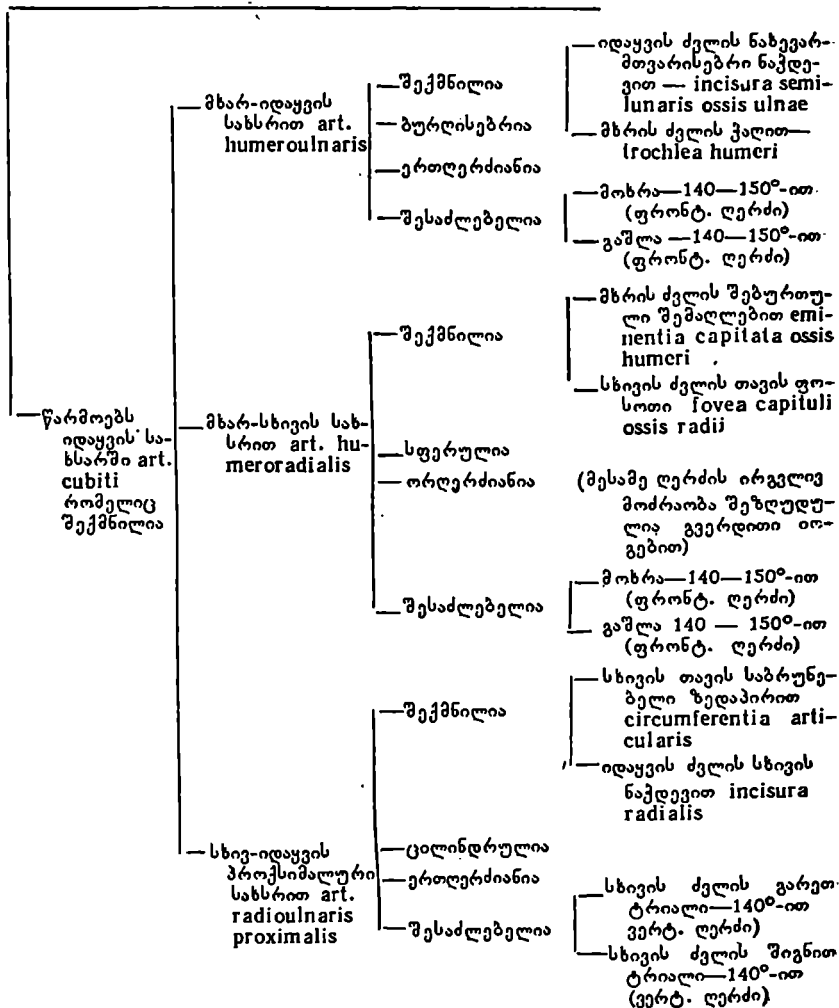 წარმოებს
იდაყვის სა-
ხსარში art.
cubiti
რომელიც
შექმნილია
მხარ-იდაყვის
სახსრით art.
humeroulnaris
შექმნილია
იდაყვის ძვლის ნახევარ-
მთვარისებრი ნაჭდე-
ვით — incisura semi-
lunaris ossis ulnae
მხრის ძვლის ჭაღით—
trochlea humeri
ბურღისებრია
ერთღერძიანია
შესაძლებელია
მოხრა—140—150°-ით
(ფრონტ. ღერძი)
გაშლა —140—150°-ით
(ფრონტ. ღერძი)
მხარ-სხივის სახ-
სრით art. hu-
meroradialis
შექმნილია
მხრის ძვლის შებურთუ-
ლი შემაღლებით emi-
nentia capitata ossis
humeri
სხივის ძვლის თავის ფო-
სოთი fovea capituli
ossis radii
სფერულია
ორღერძიანია
(მესამე ღერძის ირგვლივ
მოძრაობა შეზღუდუ-
ლია გვერდითი იო-
გებით)
შესაძლებელია
მოხრა—140—150°-ით
(ფრონტ. ღერძი)
გაშლა 140 — 150°-ით
(ფრონტ. ღერძი)
სხივ-იდაყვის
პროქსიმალური
სახსრით art.
radioulnaris
proximalis
შექმნილია
სხივის თავის საბრუნე-
ბელი ზედაპირით
circumferentia arti-
cularis
იდაყვის ძვლის სხივის
ნაჭდევით incisura
radialis
ცილინდრულია
ერთღერძიანია
შესაძლებელია
სხივის ძვლის გარეთ
ტრიალი—140°-ით
ვერტ. ღერძი)
სხივის ძვლის შიგნით
ტრიალი—140°-ით
(ვერტ. ღერძი)